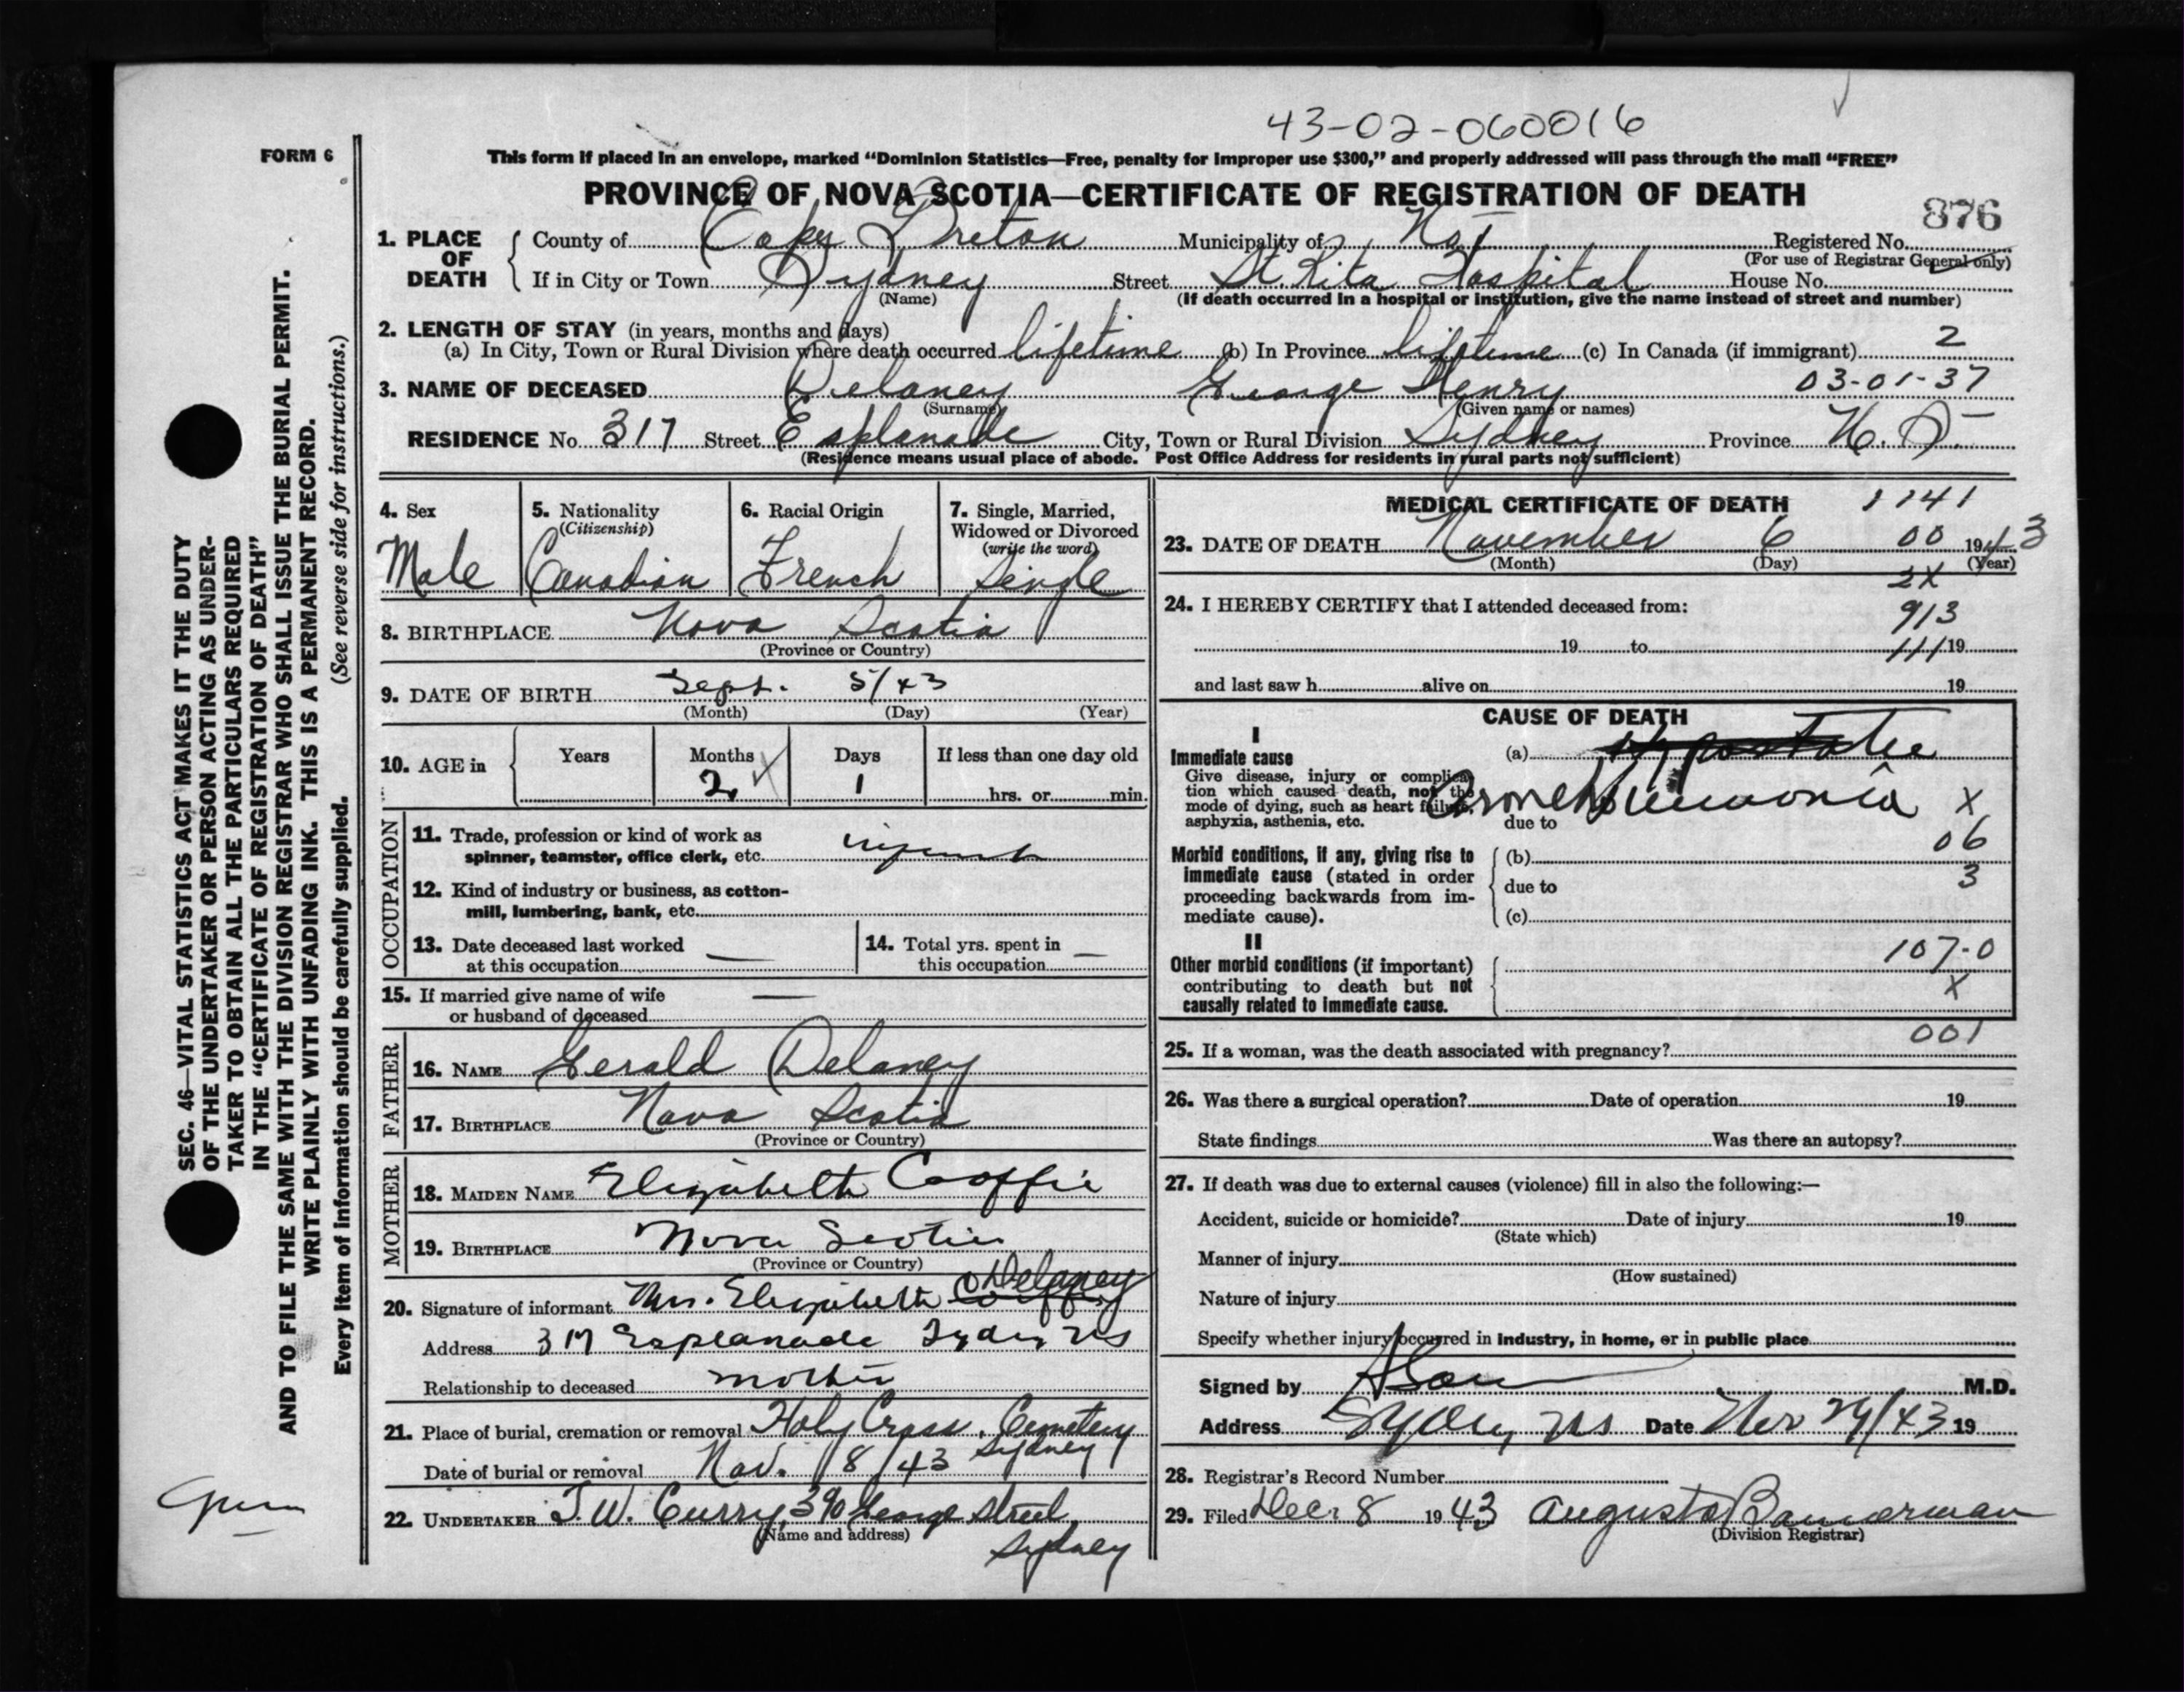 43-02-060016
FORM 6
This form if placed in an envelope, marked “Dominion Statistics—Free, penalty for improper use $300,” and properly addressed will pass through the mail “FREE”
PROVINCE OF NOVA SCOTIA—CERTIFICATE OF REGISTRATION OF DEATH
876
1. PLACE OF DEATH
County of Cape Breton Municipality of Registered No.
(For use of Registrar General only)
If in City or Town Sydney Street St. Rita Hospital House No.
(Name) (If death occurred in a hospital or institution, give the name instead of street and number)
2. LENGTH OF STAY (in years, months and days)
(a) In City, Town or Rural Division where death occurred lifetime (b) In Province lifetime (c) In Canada (if immigrant) 2
3. NAME OF DECEASED Delaney George Henry 03-01-37
(Surname) (Given name or names)
RESIDENCE No. 317 Street Esplanade City, Town or Rural Division Sydney Province N. S.
(Residence means usual place of abode. Post Office Address for residents in rural parts not sufficient)
SEC. 46—VITAL STATISTICS ACT MAKES IT THE DUTY
OF THE UNDERTAKER OR PERSON ACTING AS UNDER-
TAKER TO OBTAIN ALL THE PARTICULARS REQUIRED
IN THE “CERTIFICATE OF REGISTRATION OF DEATH”
AND TO FILE THE SAME WITH THE DIVISION REGISTRAR WHO SHALL ISSUE THE BURIAL PERMIT.
WRITE PLAINLY WITH UNFADING INK. THIS IS A PERMANENT RECORD.
Every item of information should be carefully supplied. (See reverse side for instructions.)
4. Sex
Male
5. Nationality
(Citizenship)
Canadian
6. Racial Origin
French
7. Single, Married,
Widowed or Divorced
(write the word)
Single
8. BIRTHPLACE Nova Scotia
(Province or Country)
9. DATE OF BIRTH Sept. 5/43
(Month) (Day) (Year)
10. AGE in
Years Months Days If less than one day old
2 1 hrs. or min.
OCCUPATION
11. Trade, profession or kind of work as
spinner, teamster, office clerk, etc. infant
12. Kind of industry or business, as cotton-
mill, lumbering, bank, etc.
13. Date deceased last worked
at this occupation —
14. Total yrs. spent in
this occupation —
15. If married give name of wife —
or husband of deceased
FATHER
16. NAME Gerald Delaney
17. BIRTHPLACE Nova Scotia
(Province or Country)
MOTHER
18. MAIDEN NAME Elizabeth Cooffie
19. BIRTHPLACE Nova Scotia
(Province or Country)
20. Signature of informant Mrs. Elizabeth Delaney
Address 317 Esplanade Sydney NS
Relationship to deceased mother
21. Place of burial, cremation or removal Holy Cross Cemetery
Sydney
Date of burial or removal Nov. 8/43
22. UNDERTAKER T. W. Curry, 390 George Street,
(Name and address)
Sydney
MEDICAL CERTIFICATE OF DEATH 1141
23. DATE OF DEATH November 6 00 1943
(Month) (Day) (Year)
2X
24. I HEREBY CERTIFY that I attended deceased from:
913
19 to 111 19
and last saw h alive on 19
CAUSE OF DEATH
I
Immediate cause
Give disease, injury or complica-
tion which caused death, not the
mode of dying, such as heart failure,
asphyxia, asthenia, etc.
(a) Hypostatic
Broncho Pneumonia X
due to
06
Morbid conditions, if any, giving rise to
immediate cause (stated in order
proceeding backwards from im-
mediate cause).
(b)
due to 3
(c)
II
Other morbid conditions (if important)
contributing to death but not
causally related to immediate cause.
107-0
X
001
25. If a woman, was the death associated with pregnancy?
26. Was there a surgical operation? Date of operation 19
State findings Was there an autopsy?
27. If death was due to external causes (violence) fill in also the following:—
Accident, suicide or homicide? Date of injury 19
(State which)
Manner of injury
(How sustained)
Nature of injury
Specify whether injury occurred in industry, in home, or in public place
Signed by M.D.
Address Sydney, NS Date Nov 29/43 19
28. Registrar’s Record Number
29. Filed Dec. 8 1943 Augusta Bannerman
(Division Registrar)